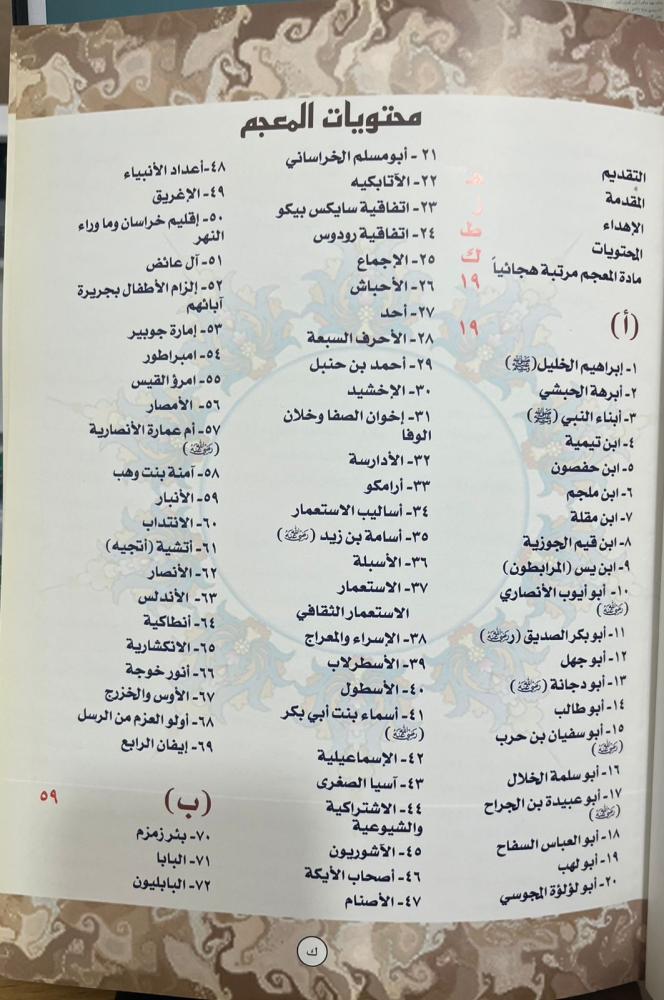 محتويات المعجم
التقديم هـ
المقدمة ز
الإهداء ط
المحتويات ك
مادة المعجم مرتبة هجائياً ١٩
(أ) ١٩
١- إبراهيم الخليل (ﷺ)
٢- أبرهة الحبشي
٣- أبناء النبي (ﷺ)
٤- ابن تيمية
٥- ابن حفصون
٦- ابن ملجم
٧- ابن مقلة
٨- ابن قيم الجوزية
٩- ابن يس (المرابطون)
١٠- أبو أيوب الأنصاري
(رضي الله عنه)
١١- أبو بكر الصديق (رضي الله عنه)
١٢- أبو جهل
١٣- أبو دجانة (رضي الله عنه)
١٤- أبو طالب
١٥- أبو سفيان بن حرب
(رضي الله عنه)
١٦- أبو سلمة الخلال
١٧- أبو عبيدة بن الجراح
(رضي الله عنه)
١٨- أبو العباس السفاح
١٩- أبو لهب
٢٠- أبو لؤلؤة المجوسي
٢١- أبو مسلم الخراساني
٢٢- الآتابكيه
٢٣- اتفاقية سايكس بيكو
٢٤- اتفاقية رودوس
٢٥- الإجماع
٢٦- الأحباش
٢٧- أحد
٢٨- الأحرف السبعة
٢٩- أحمد بن حنبل
٣٠- الإخشيد
٣١- إخوان الصفا وخلان
الوفا
٣٢- الأدارسة
٣٣- أرامكو
٣٤- أساليب الاستعمار
٣٥- أسامة بن زيد (رضي الله عنه)
٣٦- الأسبلة
٣٧- الاستعمار
الاستعمار الثقافي
٣٨- الإسراء والمعراج
٣٩- الأسطرلاب
٤٠- الأسطول
٤١- أسماء بنت أبي بكر
(رضي الله عنها)
٤٢- الإسماعيلية
٤٣- آسيا الصغرى
٤٤- الاشتراكية
والشيوعية
٤٥- الآشوريون
٤٦- أصحاب الأيكة
٤٧- الأصنام
٤٨- أعداد الأنبياء
٤٩- الإغريق
٥٠- إقليم خراسان وما وراء
النهر
٥١- آل عائض
٥٢- إلزام الأطفال بجريرة
آبائهم
٥٣- إمارة جوبير
٥٤- امبراطور
٥٥- امرؤ القيس
٥٦- الأمصار
٥٧- أم عمارة الأنصارية
(رضي الله عنها)
٥٨- آمنة بنت وهب
٥٩- الأنبار
٦٠- الانتداب
٦١- أتشية (أتجيه)
٦٢- الأنصار
٦٣- الأندلس
٦٤- أنطاكية
٦٥- الانكشارية
٦٦- أنور خوجة
٦٧- الأوس والخزرج
٦٨- أولو العزم من الرسل
٦٩- إيفان الرابع
(ب) ٥٩
٧٠- بئر زمزم
٧١- البابا
٧٢- البابليون
ك